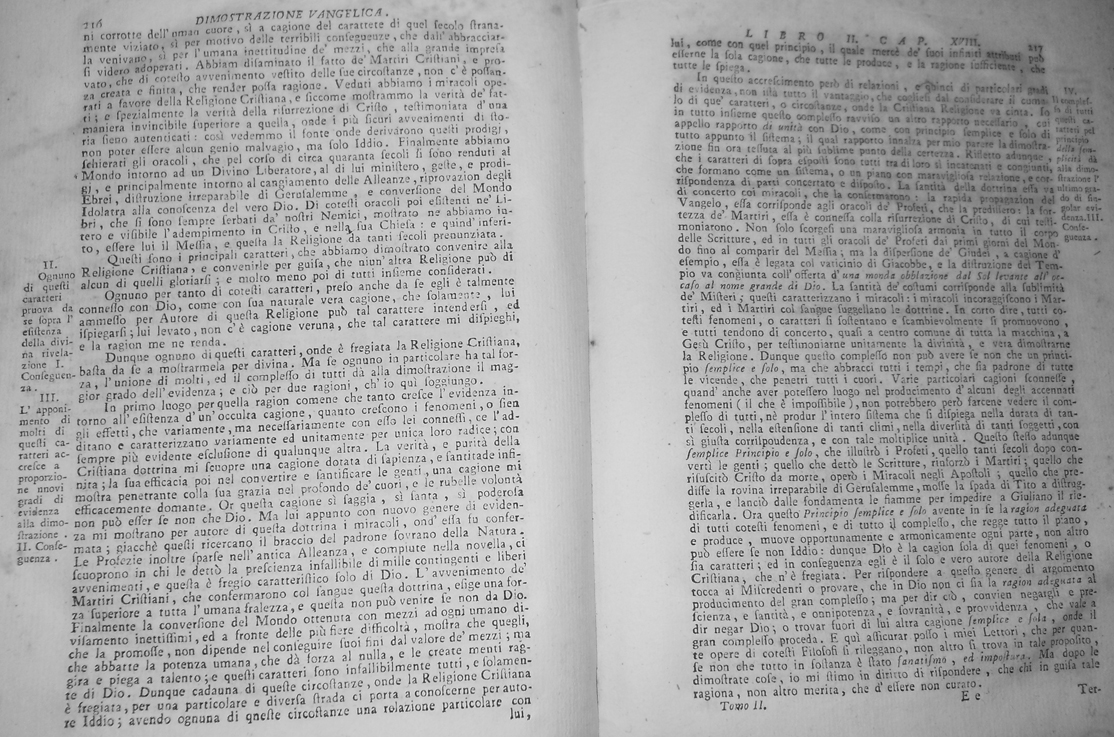 216
DIMOSTRAZIONE VANGELICA.
ni corrotte dell'uman cuore, sì a cagione del carattere di quel secolo strana-
mente viziato, sì per motivo delle terribili conseguenze, che dall'abbracciar-
la venivano, sì per l'umana inettitudine de' mezzi, che alla grande impresa
si videro adoperati. Abbiam disaminato il fatto de' Martiri Cristiani, e pro-
vato, che di cotesto avvenimento vestito delle sue circostanze, non c'è possan-
za creata e finita, che render possa ragione. Veduti abbiamo i miracoli ope-
rati a favore della Religione Cristiana, e siccome mostrammo la verità de' fat-
ti; e spezialmente la verità della risurrezion di Cristo, testimoniata d'una
maniera invincibile superiore a quella, onde i più sicuri avvenimenti di sto-
ria sieno autenticati: così vedemmo il fonte onde derivarono questi prodigj,
non poter essere alcun genio malvagio, ma solo Iddio. Finalmente abbiamo
schierati gli oracoli, che pel corso di circa quaranta secoli si sono renduti al
Mondo intorno ad un Divino Liberatore, al di lui ministero, geste, e prodi-
gj, e principalmente intorno al cangiamento delle Alleanze, riprovazion degli
Ebrei, distruzione irreparabile di Gerusalemme, e conversione del Mondo
Idolatra alla conoscenza del vero Dio. Di cotesti oracoli poi esistenti ne' Li-
bri, che si sono sempre serbati da' nostri Nemici, mostrato ne abbiamo in-
tero e visibile l'adempimento in Cristo, e nella sua Chiesa: e quind' inferi-
to, essere lui il Messia, e questa la Religione da tanti secoli prenunziata.
Questi sono i principali caratteri, che abbiamo dimostrato convenire alla
Religione Cristiana, e convenirle per guisa, che niun'altra Religione può di
alcun di quelli gloriarsi; e molto meno poi di tutti insieme considerati.
Ognuno per tanto di cotesti caratteri, preso anche da se egli è talmente
connesso con Dio, come con sua naturale vera cagione, che solamente, lui
ammesso per Autore di questa Religione può tal carattere intendersi, ed
ispiegarsi; lui levato, non c'è cagione veruna, che tal carattere mi dispieghi,
e la ragion me ne renda.
Dunque ognuno di questi caratteri, onde è fregiata la Religione Cristiana,
basta da se a mostrarmela per divina. Ma se ognuno in particolare ha tal for-
za, l'unione di molti, ed il complesso di tutti dà alla dimostrazione il mag-
gior grado dell'evidenza; e ciò per due ragioni, ch'io qui soggiungo.
In primo luogo per quella ragion comene che tanto cresce l'evidenza in-
torno all'esistenza d'un'occulta cagione, quanto crescono i fenomeni, o sien
gli effetti, che variamente, ma necessariamente con esso lei connessi, ce l'ad-
ditano e caratterizzano variamente ed unitamente per unica loro radice; con
sempre più evidente esclusione di qualunque altra. La verità, e purità della
Cristiana dottrina mi scuopre una cagione dotata di sapienza, e santitade infi-
nita; la sua efficacia poi nel convertire e santificare le genti, una cagione mi
mostra penetrante colla sua grazia nel profondo de' cuori, e le rubelle volontà
efficacemente domante. Or questa cagione sì saggia, sì santa, sì poderosa
non può esser se non che Dio. Ma lui appunto con nuovo genere di eviden-
za mi mostrano per autore di questa dottrina i miracoli, ond'essa fu confer-
mata; giacchè questi ricercano il braccio del padrone sovrano della Natura.
Le Profezie inoltre sparse nell'antica Alleanza, e compiute nella novella, ci
scuoprono in chi le dettò la prescienza infallibile di mille contingenti e liberi
avvenimenti, e questa è fregio caratteristico solo di Dio. L'avvenimento de'
Martiri Cristiani, che confermarono col sangue questa dottrina, esige una for-
za superiore a tutta l'umana fralezza, e questa non può venire se non da Dio.
Finalmente la conversione del Mondo ottenuta con mezzi ad ogni umano di-
visamento inettissimi, ed a fronte delle più fiere difficoltà, mostra che quegli,
che la promosse, non dipende nel conseguire suoi fini dal valore de' mezzi; ma
che abbatte la potenza umana, che dà forza al nulla, e le create menti rag-
gira e piega a talento; e questi caratteri sono infallibilmente tutti, e solamen-
te di Dio. Dunque cadauna di queste circostanze, onde la Religione Cristiana
è fregiata, per una particolare e diversa strada ci porta a conoscerne per auto-
re Iddio; avendo ognuna di queste circostanze una relazione particolare con
lui,
II.
Ognuno
di questi
caratteri
pruova da
se sopra l'
esistenza
della divi-
na rivela-
zione I.
Conseguen-
za.
III.
L'apponi-
mento di
molti di
questi ca-
ratteri ac-
cresce a
proporzio-
ne nuovi
gradi di
evidenza
alla dimo-
strazione.
II. Conse-
guenza.
LIBRO II. CAP. XVIII.
217
lui, come con quel principio, il quale mercè de' suoi infiniti attributi può
esserne la sola cagione, che tutte le produce, e la ragione sufficiente, che
tutte le spiega.
In questo accrescimento però di relazioni, e quinci di particolari gradi
di evidenza, non istà tutto il vantaggio, che
lo di que' caratteri, o circostanze, onde la Religione Cristiana va cinta. Io
in tutto insieme questo complesso ravviso un altro rapporto necessario, cui
appello rapporto di unità con Dio, come con principio semplice e solo di
tutto appunto il sistema; il qual rapporto innalza per mio parere la dimostra-
zione fin ora tessuta al più sublime punto della certezza. Rifletto adunque,
che i caratteri di sopra esposti sono tutti tra di loro sì incatenati e congiunti,
che formano come un sistema, o un piano con maravigliosa relazione, e cor-
rispondenza di parti concertato e disposto. La santità della dottrina essa va
di concerto coi miracoli, che la confermarono: la rapida propagazion del
Vangelo, essa corrisponde agli oracoli de' Profeti, che la predissero: la for-
tezza de' Martiri, essa è connessa colla risurrezion di Cristo, di cui testi-
moniarono. Non solo scorgesi una maravigliosa armonia in tutto il corpo
delle Scritture, ed in tutti gli oracoli de' Profeti dai primi giorni del Mon-
do fino al comparir del Messia; ma la dispersione de' Giudei, a cagione d'
esempio, essa è legata col vaticinio di Giacobbe, e la distruzione del Tem-
pio va congiunta coll'offerta d'una monda obblazione dal Sol levante all'oc-
caso al nome grande di Dio. La santità de' costumi corrisponde alla sublimità
de' Misteri; questi caratterizzano i miracoli: i miracoli incoraggiscono i Mar-
tiri, ed i Martiri col sangue suggellano le dottrine. In corto dire, tutti co-
testi fenomeni, o caratteri si sostentano e scambievolmente si promuovono,
e tutti tendono di concerto, quai a centro comune di tutta la macchina, a
Gesù Cristo, per testimoniarne unitamente la divinità, e vera dimostrarne
la Religione. Dunque questo complesso non può avere se non che un princi-
pio semplice e solo, ma che abbracci tutti i tempi, che sia padrone di tutte
le vicende, che penetri tutti i cuori. Varie particolari cagioni sconnesse,
quand'anche aver potessero luogo nel producimento d'alcuni degli accennati
fenomeni (il che è impossibile), non potrebbero però farcene vedere il com-
plesso di tutti, nè produr l'intero sistema che si dispiega nella durata di tan-
ti secoli, nella estensione di tanti climi, nella diversità di tanti soggetti, con
sì giusta corrispondenza, e con tale moltiplice unità. Questo stesso adunque
semplice Principio e solo, che illustrò i Profeti, quello tanti secoli dopo con-
vertì le genti; quello che dettò le Scritture, rinforzò i Martiri; quello che
risuscitò Cristo da morte, operò i Miracoli negli Apostoli; quello che pre-
disse la rovina irreparabile di Gerusalemme, mosse la spada di Tito a distrug-
gerla, e lanciò dalle fondamenta le fiamme per impedire a Giuliano il rie-
dificarla. Ora questo Principio semplice e solo avente in se la ragion adeguata
di tutti cotesti fenomeni, e di tutto il complesso, che regge tutto il piano,
e produce, muove opportunamente e armonicamente ogni parte, non altro
può essere se non Iddio: dunque Dio è la cagion sola di quei fenomeni, o
sia caratteri; ed in conseguenza egli è il solo e vero autore della Religione
Cristiana, che n'è fregiata. Per rispondere a questo genere di argomento
tocca ai Miscredenti o provare, che in Dio non ci sia la ragion adeguata al
producimento del gran complesso; ma per dir ciò, convien negargli e pre-
scienza, e santità, e onnipotenza, e sovranità, e provvidenza, che vale a
dir negar Dio; o trovar fuori di lui altra cagione semplice e sola, onde il
gran complesso proceda. E quì assicurar posso i miei Lettori, che per quan-
te opere di cotesti Filosofi si rileggano, non altro si trova in tale proposito,
se non che tutto in sostanza è stato fanatismo, ed impostura. Ma dopo le
dimostrate cose, io mi stimo in diritto di rispondere, che chi in guisa tale
ragiona, non altro merita, che d'essere non curato.
Tomo II.
E e
Ter-
IV.